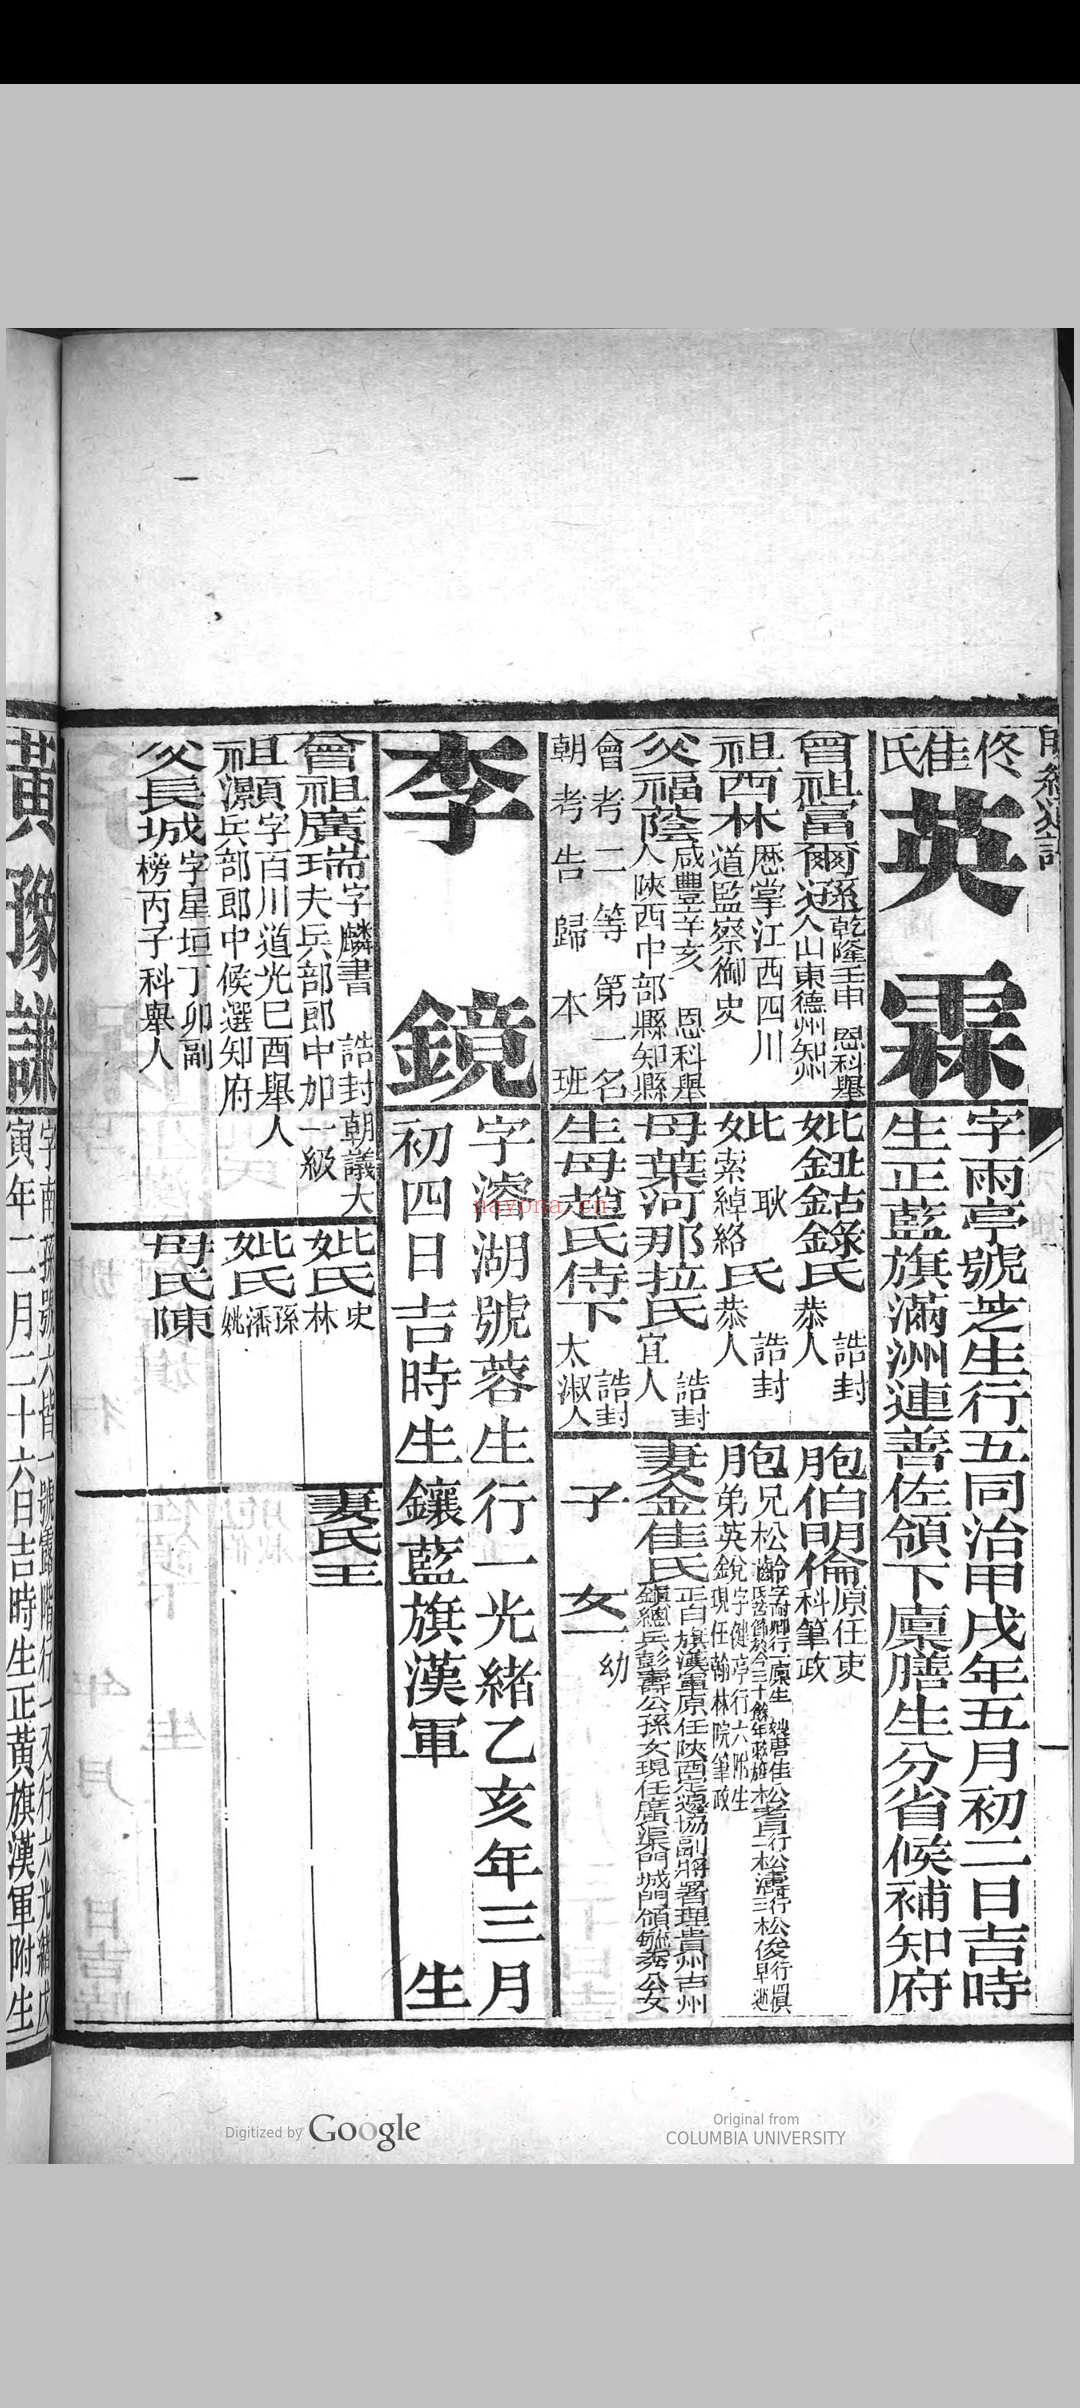 佟佳氏
英霖
字雨亭號芝生行五同治甲戌年五月初二日吉時
生正藍旗滿洲連善佐領下廩膳生分省候補知府
曾祖富爾遜
乾隆壬申 恩科舉
人山東德州知州
祖西林
歷掌江西四川
道監察御史
父福蔭
咸豐辛亥 恩科舉
人陝西中部縣知縣
會考二等第一名
朝考告歸本班
妣鈕祜錄氏
誥封
恭人
妣
耿
索綽絡
氏
誥封
恭人
母葉河那拉氏
誥封
宜人
生母趙氏侍下
誥封
太淑人
胞伯明倫
原任吏
科筆政
胞兄松齡
胞弟英銳
字健亭行六附生
現任翰林院筆政
妻金佳氏
正白旗漢軍原任陝西定邊協副將署理貴州古州
鎮總兵彭壽公孫女現任廣渠門城門領毓秀公女
子
女一
幼
李鏡
字濬湖號蓉生行一光緒乙亥年三月
初四日吉時生鑲藍旗漢軍
生
曾祖廣瑞
字麟書 誥封朝議大
夫兵部郎中加一級
祖
顥
字百川道光己酉舉人
灝
兵部郎中候選知府
父長城
字星垣丁卯副
榜丙子科舉人
妣氏
史
林
妣氏
孫
潘
姚
母氏陳
妻氏王
黃豫謙
寅年二月二十六日吉時生正黃旗漢軍附生
nayona.cn
Digitized by Google
Original from
COLUMBIA UNIVERSITY